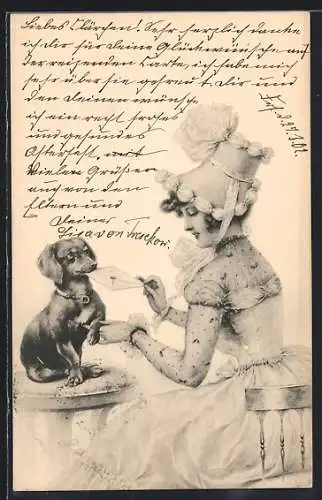 Liebes Klärchen. Sehr herzlich danke
ich dir für deine Glückwünsche auf
der reizenden Carte, ich habe mich
sehr über sie gefreut. Dir und
den Deinen wünsche
ich ein recht frohes
und gesundes
Osterfest, mit
vielen Grüßen
auch von den
Eltern und
Deiner
Lisa von Treskow.